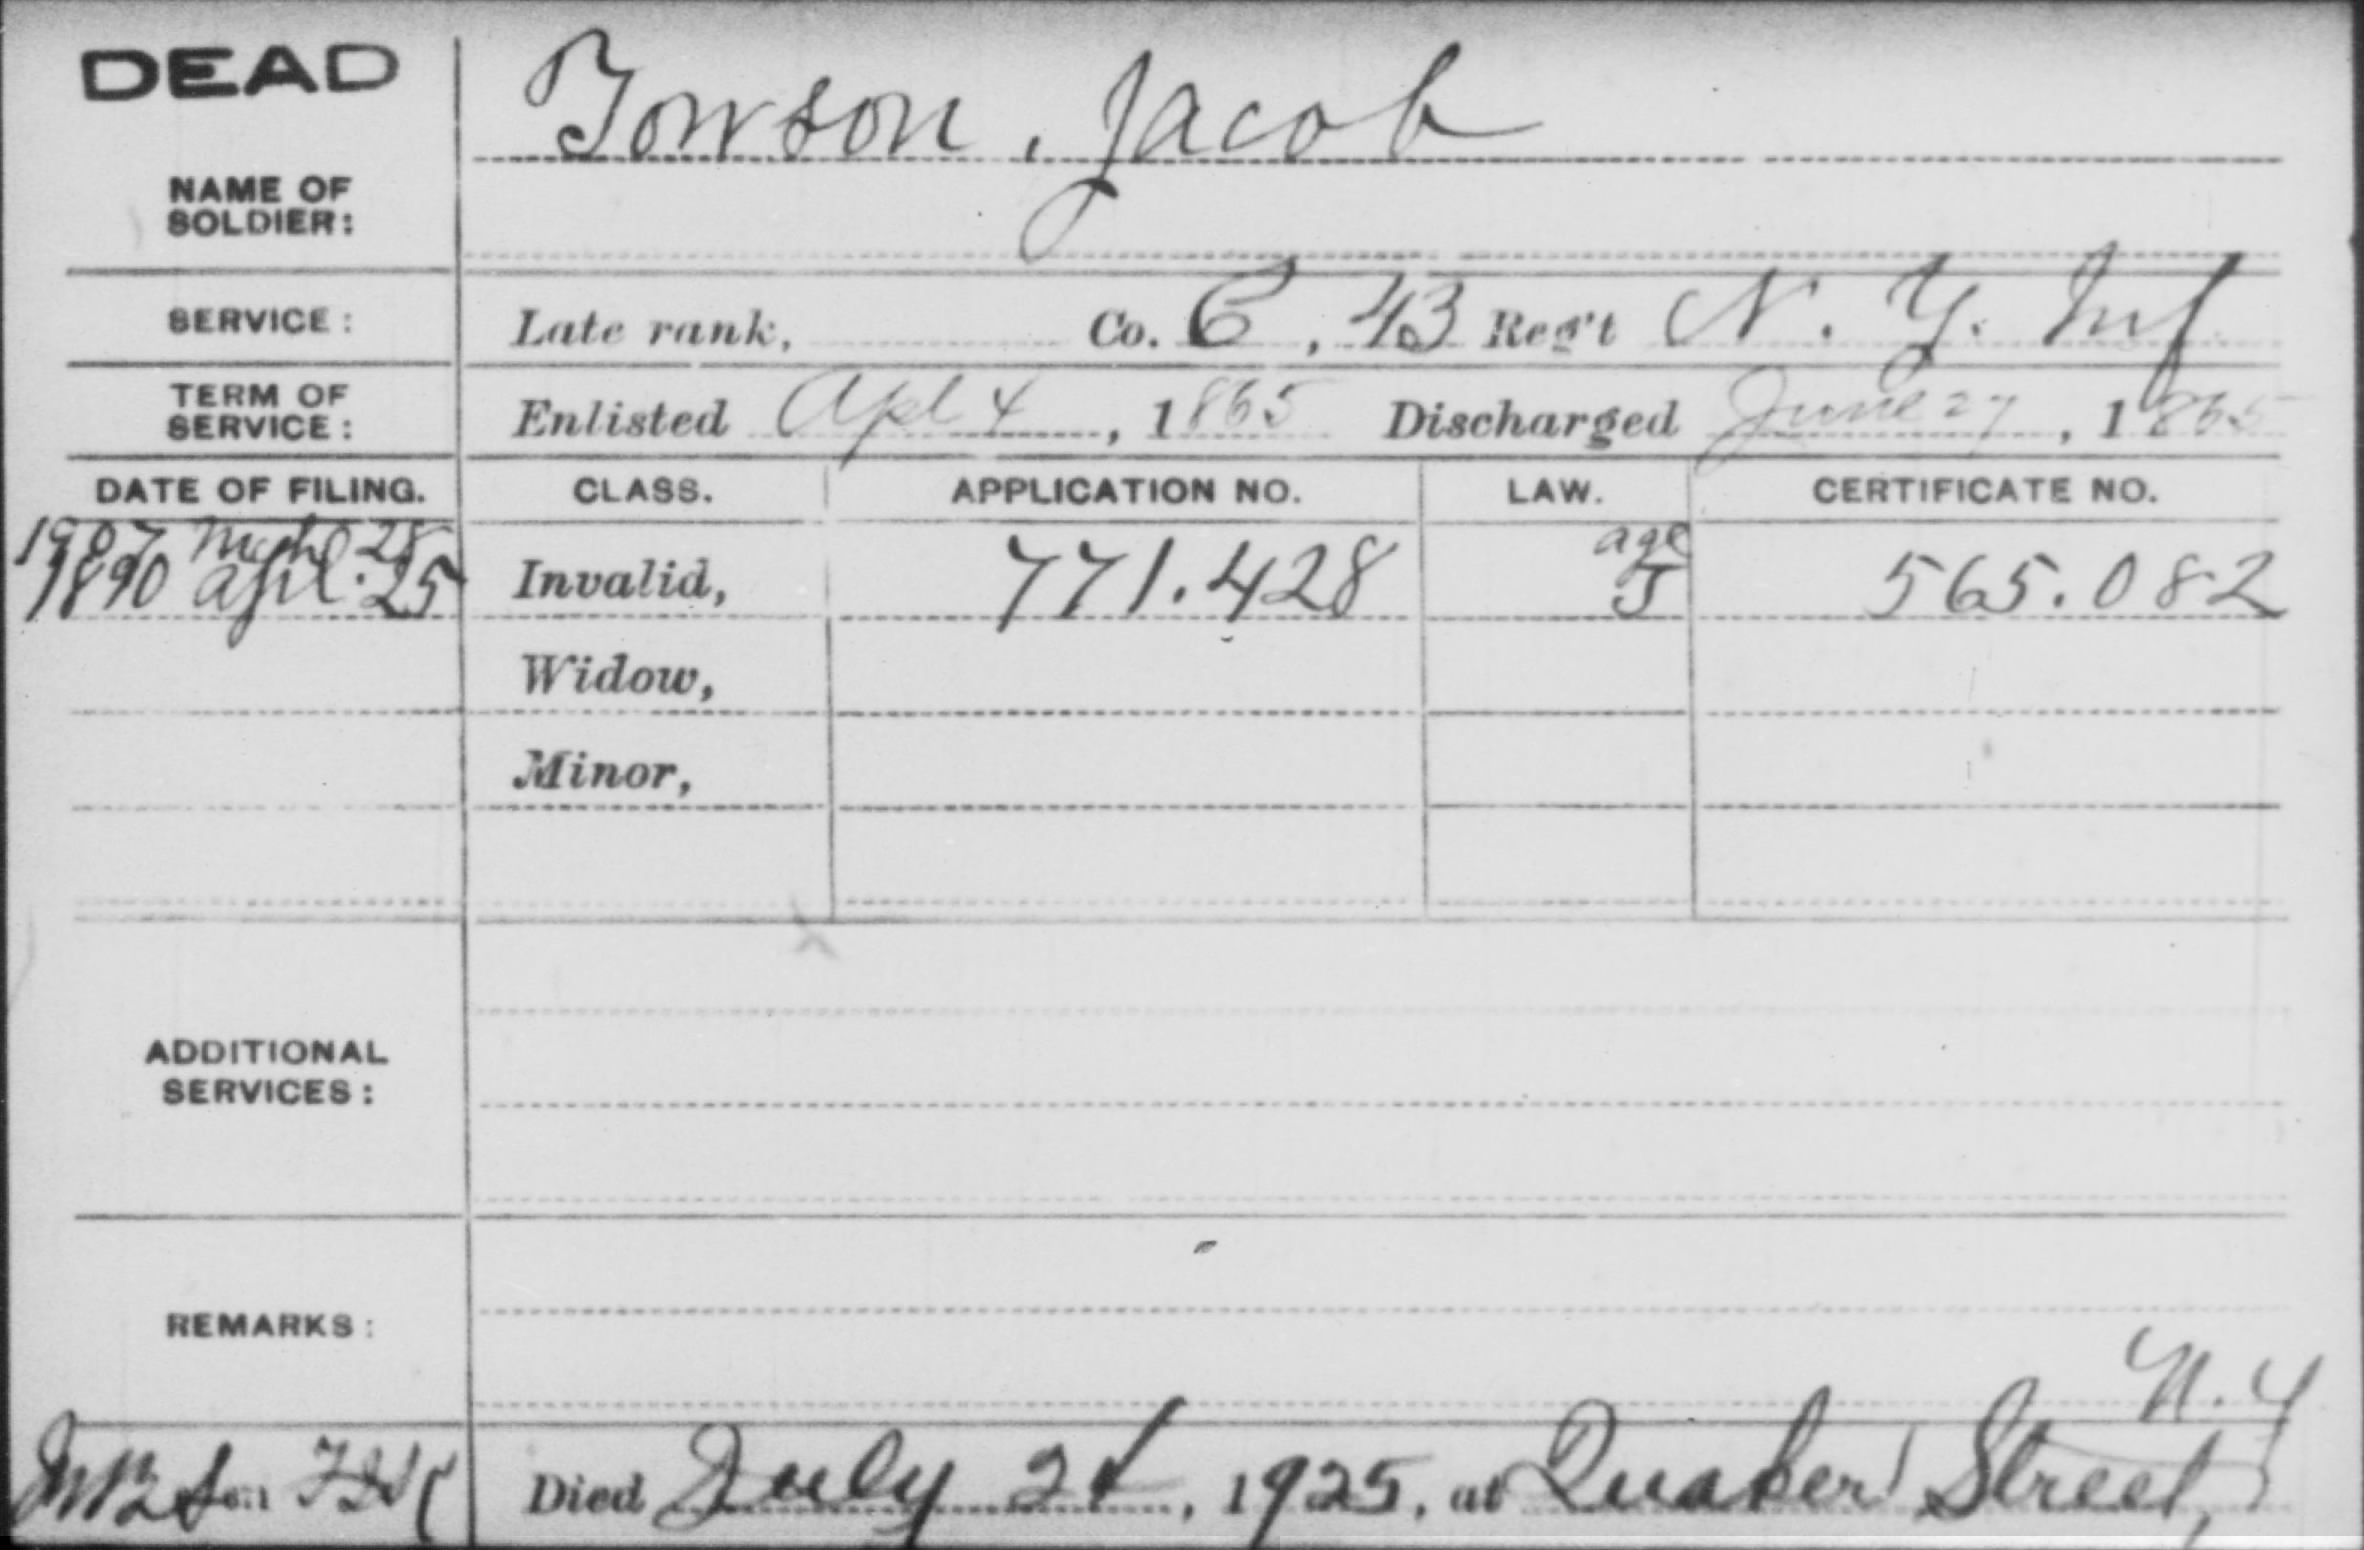 DEAD
Towson, Jacob
NAME OF
SOLDIER:
SERVICE: Late rank, Co. C, 43 Reg't N. Y. Inf
TERM OF
SERVICE: Enlisted Apl 4, 1865 Discharged June 27, 1865
DATE OF FILING. CLASS. APPLICATION NO. LAW. CERTIFICATE NO.
1907 28 age
1890 Apil. 25 Invalid, 771.428 J 565.082
Widow,
Minor,
ADDITIONAL
SERVICES:
REMARKS:
N.Y
Died July 24, 1925, at Quaker Street,